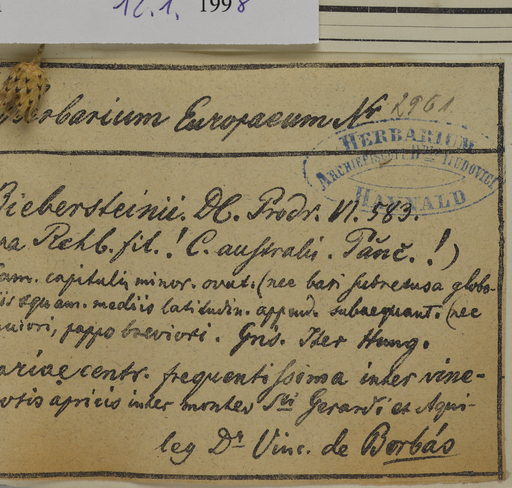 12.1. 1998
Herbarium Europaeum Nr 2961
HERBARIUM
ARCHIEPISCOPI Dris LUDOVICI
HAYNALD
Biebersteinii. DC. Prodr. VI. 583.
Rchb. fil.! C. australis. Panč.!)
capitulis minor. ovat. (nec basi subretusa globo-
squam. mediis latitudin. append. subaequant. (nec
pappo breviori. Gris. Iter Hung.
centr. frequentissima inter vine-
apricis inter montes Sti Gerardi et Aqui-
leg Dr Vinc. de Borbás